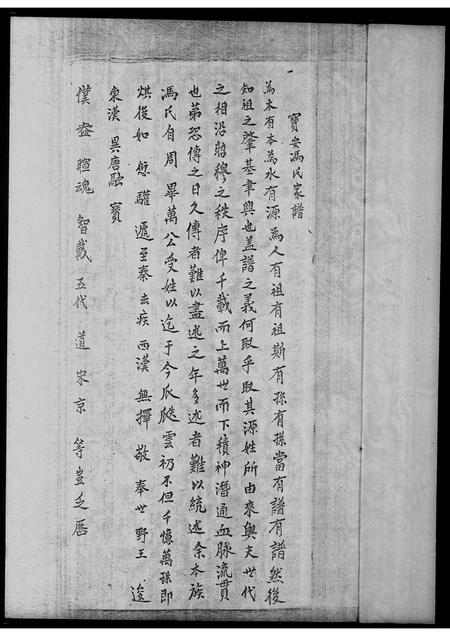 寶安馮氏家譜
為木有本為水有源為人有祖有祖斯有孫有孫當有譜有譜然後
知祖之肇基聿興也盖譜之義何取乎取其源姓所由來與夫世代
之相沿昭穆之秩序俾千載而上萬世而下積神潛通血脉流貫
也第恐傳之日久傳者難以盡述之年多述者難以統述余本族
馮氏自周 畢萬公受姓以迄于今瓜瓞雲礽不但千億萬孫即
烘後如 驩 遞至秦去疾西漢無擇敬奉世野王 逡
東漢 異唐融寳
僕 盎暄魂智戴五代 道宋京 等豈乏歷